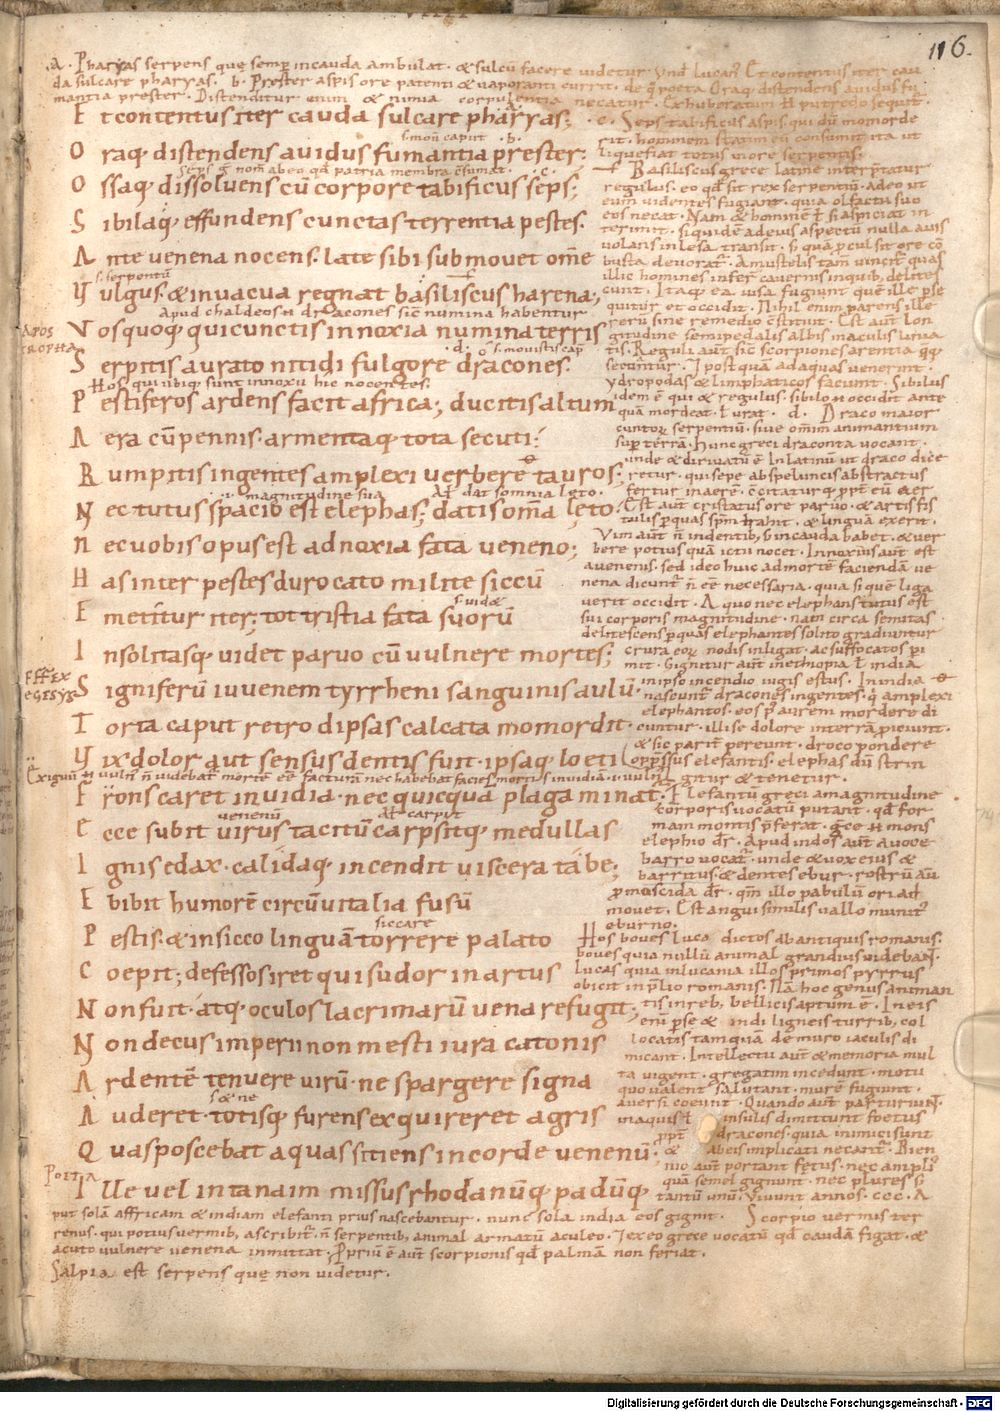 116.
.A. Pharyas serpens quę semp incauda ambulat. & sulcū facere uidetur. Vnđ lucan' Et contentus iter cau
da sulcare pharyas. b. Prester aspis ore patenti & uaporanti currit. de q poeta Oraq; distendens auidus fu
mantia prester. Distenditur enim & nimia corpulentia necatur. Exhuberatum putredo sequit.
E t contentus iter cauda sulcare pharyas;
.c. Seps tabificus aspis qui dū momorde
rit hominem statim eū consumit ita ut
liquefiat totus in ore serpentis.
.b.
O raq; distendens auidus fumantia prester:
.c.
O ssaq; dissoluens cū corpore tabificus seps;
S ibilaq; effundens cunctas terrentia pestes.
A nte uenena nocens. late sibi submouet om̄e
s. serpentū
V ulgus. & inuacua regnat basiliscus harena;
Apud chaldeos dracones sic numina habentur
V osquoq; qui cunctis innoxia numina terris
.d.
S erpitis aurato nitidi fulgore dracones.
Hos qui ubiq; sunt innoxii hic nocentes.
P estiferos ardens facit africa; ducitis altum
A era cū pennis. armentaq; tota secuti;
R umpitis ingentes amplexi uerbere tauros;
i. magnitudine sua
N ec tutus spacio est elephas; datis om̄a lęto.
N ec uobis opus est ad noxia fata ueneno;
H as inter pestes duro cato milite siccū
E metitur iter; tot tristia fata suorū
I nsolitasq; uidet paruo cū uulnere mortes;
S igniferū iuuenem tyrrheni sanguinis aulū.
T orta caput retro dipsas calcata momordit.
V ix dolor aut sensus dentis fuit. ipsaq; loeti
F rons caret inuidia. nec quicquā plaga minat.
uenenū
E cce subit uirus tacitū carpsitq; medullas
I gnis edax. calidaq; incendit uiscera tabe;
E bibit humorē circū uitalia fusū
siccare
P estis. & insicco linguā torrere palato
C oepit; defessos iret qui sudor in artus
N on fuit. atq; oculos lacrimarū uena refugit;
N on decus imperii non mesti iura catonis
A rdentē tenuere uirū. ne spargere signa
A uderet. totisq; furens exquireret agris
Q uas poscebat aquas sitiens in corde uenenū;
I lle uel in tanaim missus rhodanūq; padūq;
Basiliscus grece latine interp̄tatur
regulus. eo qđ sit rex serpentiū. adeo ut
eum uidentes fugiant. quia olfactu suo
eos necat. Nam & hominē si aspiciat in
terimit. siquidē ad eius aspectū nulla auis
uolans inlesa transit.
illic homines infer cauernis inquib; delites
cunt. Itaq; ea uisa fugiunt quē ille pse
quitur et occidit. Nihil enim parens ille
rerū sine remedio cstituit. Est aut lon
gitudine semipedalis albis maculis linia
tis. Reguli aut sic scorpiones arentia qq;
secuntur. postquā ad aquas uenerint
ydropodas & limphaticos faciunt. Sibilus
idem ē qui & regulus. sibilo occidit ante
quā mordeat. urat. d. Draco maior
cunctor serpentiū. siue omm̄ animantium
sup terrā. hunc greci draconta uocant.
unde & diriuatū ē In latinū ut draco dice
retur. qui sepe abspeluncis abstractus
fertur in aerē.
Est aut cristatus ore paruo & artis fis
tulis & linguā exerit.
Vim aut n̄ indentib; s; incauda habet. & uer
bere potius quā ictu nocet. Innoxius aut est
auenenis. sed ideo huic ad mortē faciendā ue
nena dicunt n̄ eē necessaria. quia si quē liga
uerit occidit. A quo nec elephans tutus est
sui corporis magnitudine. nam circa semitas
delitescens p quas elephantes solito gradiuntur
crura eor nodis inligat. ac suffocatos pi
mit. Gignitur aut in ethiopia & india
in ipso incendio iugis estus. In india
nascunt dracones ingentes. q amplexi
elephantos. eos p aurem mordere di
cuntur. illi se dolore interrā piciunt.
& sic parit pereunt. draco pondere
opp̄ssus elefantis. elephas dū strin
gitur & tenetur.
Elefantū greci a magnitudine
corporis uocatū putant. qđ for
mam montis p̄ferat. gce mons
elephio dr. Apud indos aut a uoce
barro uocat. unde & uox eius &
barritus & dentes ebur. rostrū aū
pmoscida dr. qm̄ illo pabulū ori ad
mouet. Est angui similis uallo munit'
eburno.
Hos boues luca dictos ab antiquis romanis.
boues quia nullū animal grandius uidebant.
lucas quia in lucania illos primos pyrrus
obicit in p̄lio romanis. Nā hoc genus animan
tis in reb; bellicis aptum ē. In eis
eni pse & indi ligneis turrib; col
locatis tamquā de muro iaculis di
micant. Intellectu aut & memoria mul
ta uigent. gregatim incedunt. motu
quo ualent salutant. murē fugiunt.
auersi coeunt. Quando aut parturiunt.
in aquis insulis dimittunt foetus
ppt dracones. quia inimici sunt
& ab eis implicati necant. Bien
nio aut portant fetus. nec ampli'
quā semel gignunt. nec plures s;
tantū unū. Viuunt annos. ccc. A
put solā affricam & indiam elefanti prius nascebantur. nunc sola india eos gignit. Scorpio uermis ter
renus. qui potius uermib; ascribit. n̄ serpentib; animal armatū aculeo. & ex eo grece uocatū qđ caudā figat. &
acuto uulnere uenena inmittat. Propriū ē aut scorpionis qđ palmā non feriat.
Salpia est serpens quę non uidetur.
Digitalisierung gefördert durch die Deutsche Forschungsgemeinschaft - DFG